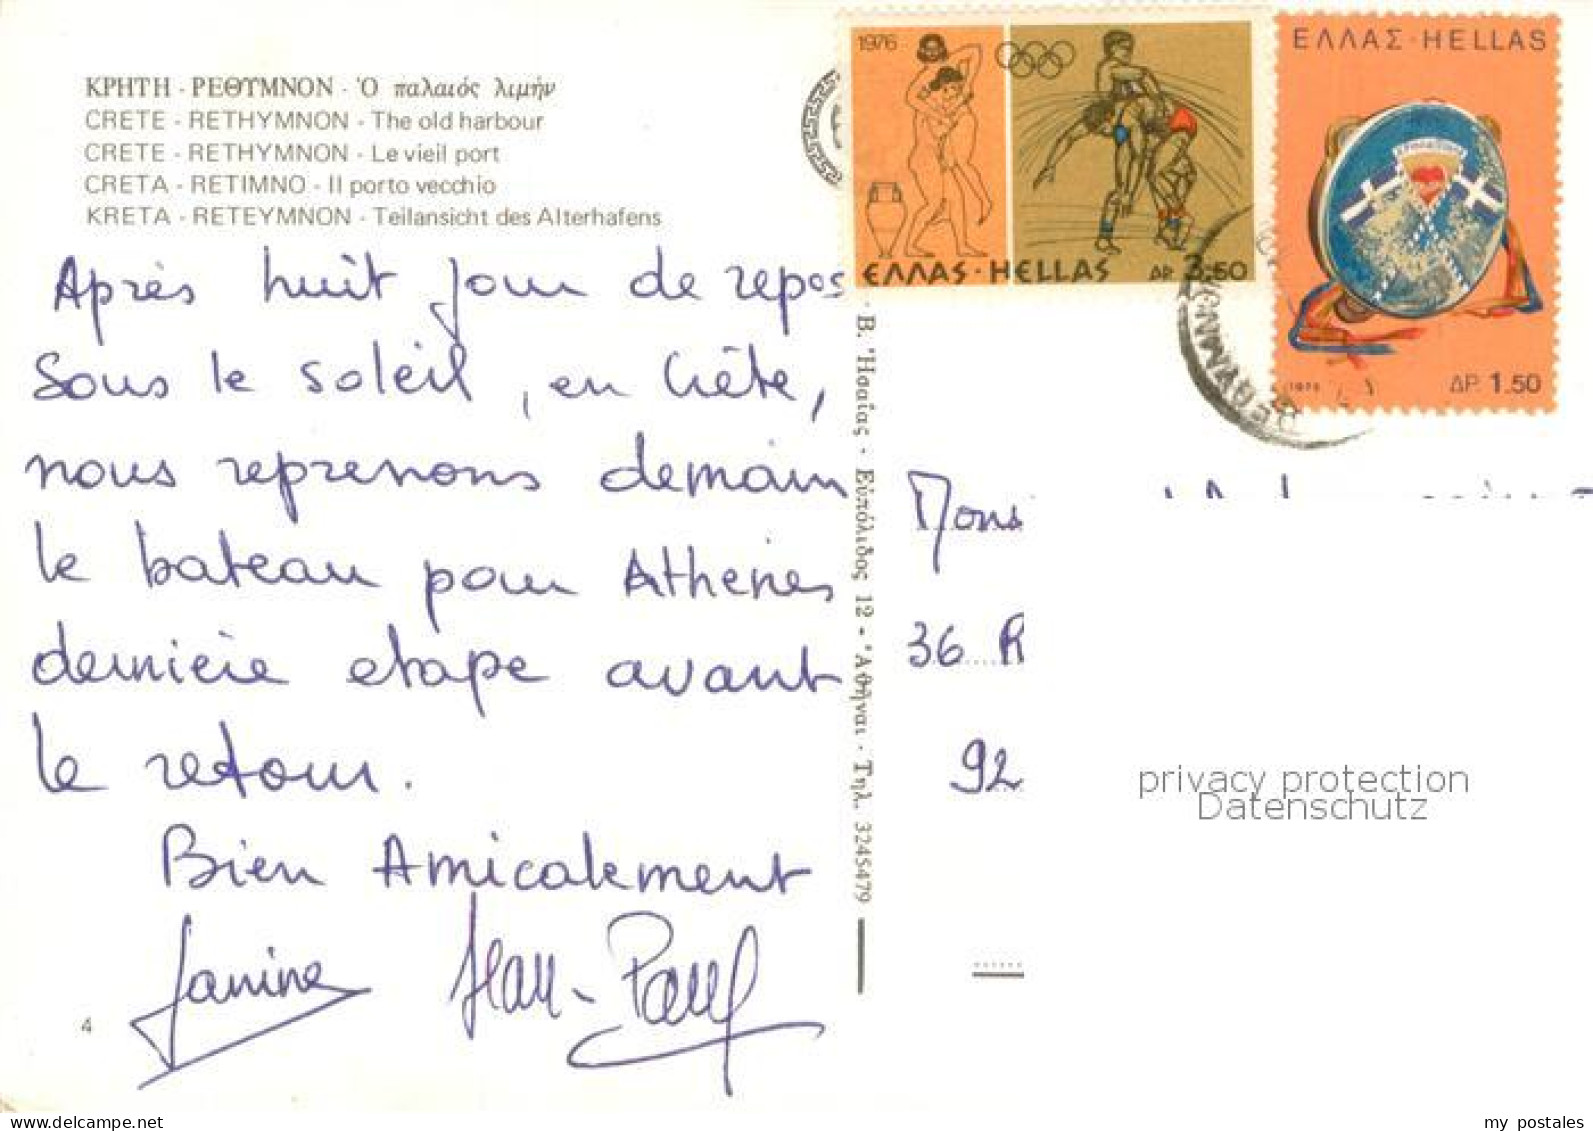 ΚΡΗΤΗ - ΡΕΘΥΜΝΟΝ - Ὁ παλαιός λιμήν
CRETE - RETHYMNON - The old harbour
CRETE - RETHYMNON - Le vieil port
CRETA - RETIMNO - Il porto vecchio
KRETA - RETEYMNON - Teilansicht des Alterhafens
Après huit jour de repos
sous le soleil, en Crète,
nous reprenons demain
le bateau pour Athènes
dernière etape avant
le retour.
Bien Amicalement
Janine Jean-Paul
4
Β. Ἡσαΐας - Εὐπόλιδος 12 - Ἀθῆναι - Τηλ. 3245479
1976
ΕΛΛΑΣ - HELLAS ΔΡ 3.50
ΕΛΛΑΣ - HELLAS
1975 ΔΡ. 1.50
ΡΕΘΥΜΝΟΝ
Mons
36 R
92
privacy protection
Datenschutz
www.delcampe.net
my_postales